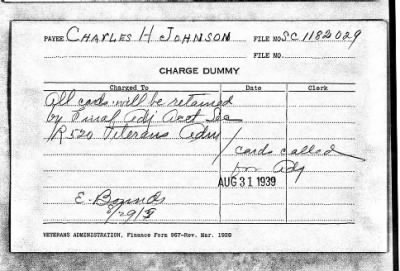 PAYEE CHARLES H JOHNSON FILE NO. SC 1182029
FILE NO.
CHARGE DUMMY
Charged To Date Clerk
All cards will be retained
by Final Adj Acct Sec
R520 Veterans Adm
cards called
for Adj
AUG 31 1939
E. Bounds
8/29/9
VETERANS ADMINISTRATION, Finance Form 967—Rev. Mar. 1938